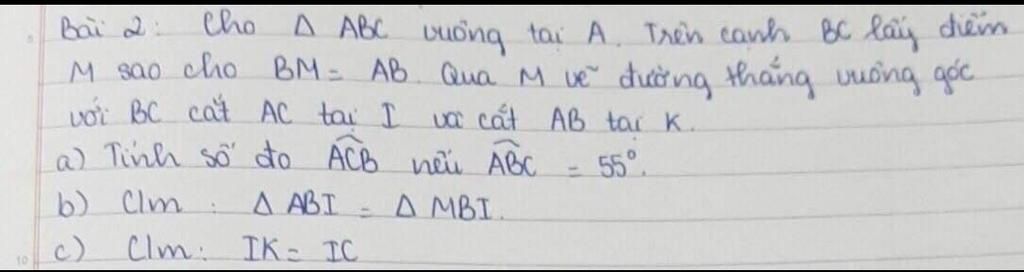 Bài 2: Cho Δ ABC vuông tại A. Trên cạnh BC lấy điểm
M sao cho BM = AB. Qua M vẽ đường thẳng vuông góc
với BC cắt AC tại I và cắt AB tại K.
a) Tính số đo \widehat{ACB} nếu \widehat{ABC} = 55°.
b) C/m: Δ ABI = Δ MBI.
c) C/m: IK = IC
10